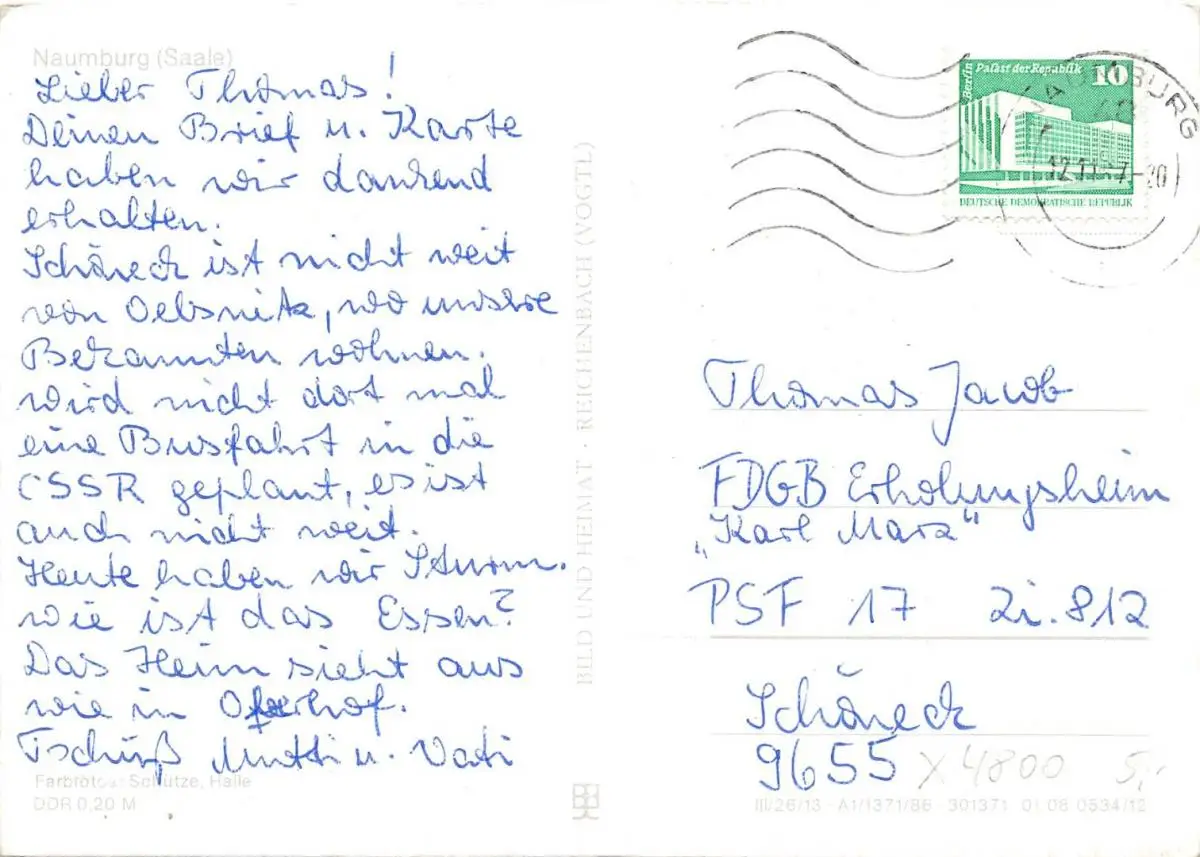 Naumburg (Saale)
Lieber Thomas!
Deinen Brief u. Karte
haben wir dankend
erhalten.
Schöneck ist nicht weit
von Oelsnitz, wo unsere
Bekannten wohnen.
Wird nicht dort mal
eine Busfahrt in die
CSSR geplant, es ist
auch nicht weit.
Heute haben wir Sturm.
Wie ist das Essen?
Das Heim sieht aus
wie in Oberhof.
Tschüß Mutti u. Vati
Farbfotos: Schütze, Halle
DDR 0,20 M
BILD UND HEIMAT · REICHENBACH (VOGTL)
Berlin
Palast der Republik 10
DEUTSCHE DEMOKRATISCHE REPUBLIK
NAUMBURG
12.11.87-20
Thomas Jacob
FDGB Erholungsheim
„Karl Marx"
PSF 17 Zi. 812
Schöneck
9655
X 4800 5,-
III/26/13 · A1/1371/86 301371 01 08 0534/12